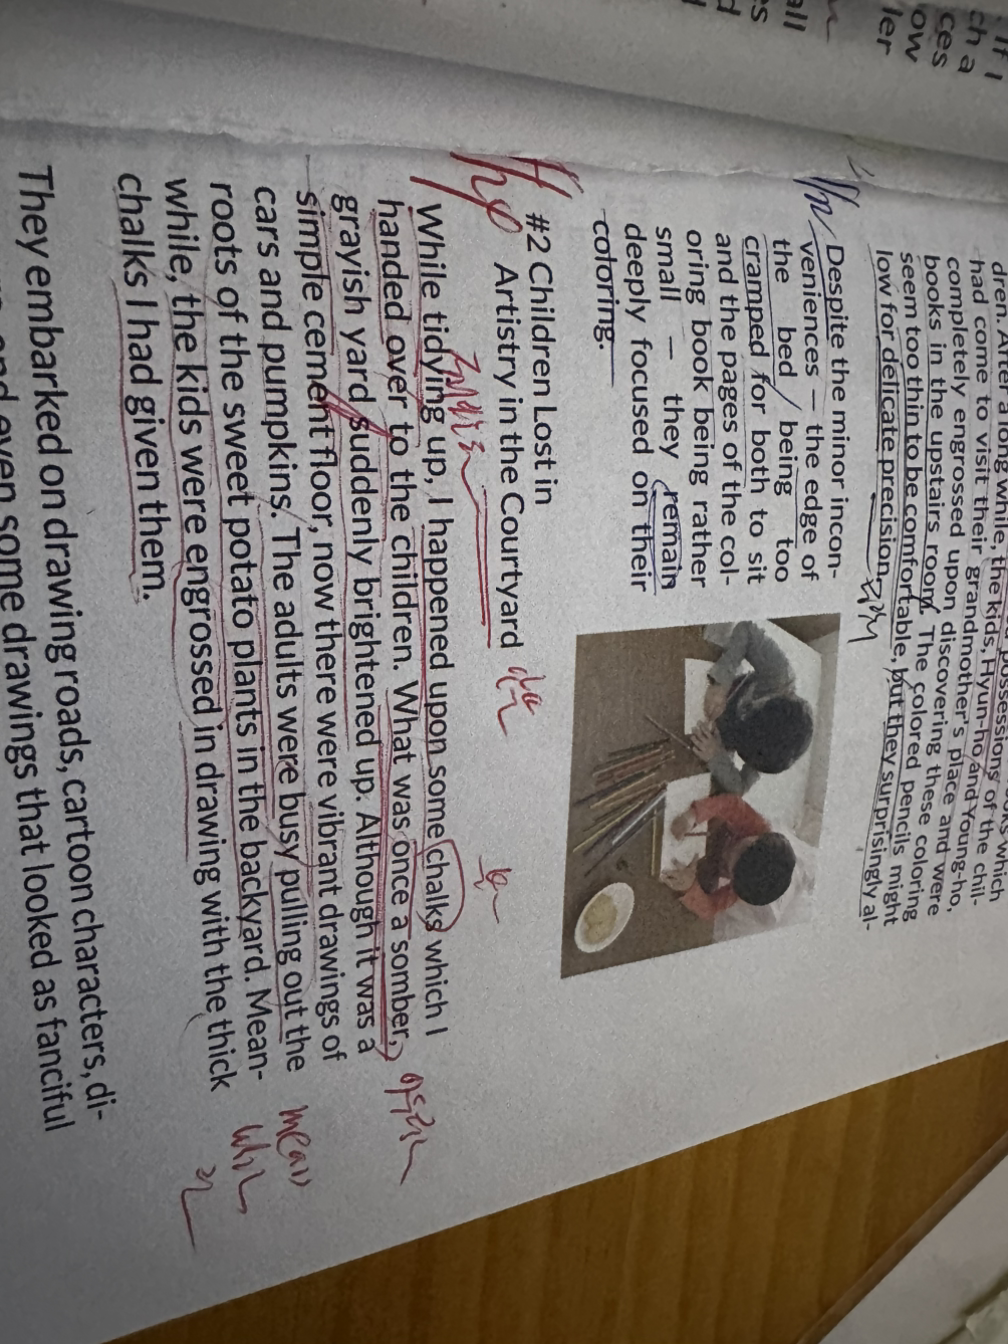 all
If I
ch a
ces
ow
ler
possessions of the chil-
dren. After a long while, the kids, Hyun-ho and Young-ho,
had come to visit their grandmother's place and were
completely engrossed upon discovering these coloring
books in the upstairs room. The colored pencils might
seem too thin to be comfortable, but they surprisingly al-
low for delicate precision.
Despite the minor incon-
veniences – the edge of
the bed being too
cramped for both to sit
and the pages of the col-
oring book being rather
small – they remain
deeply focused on their
coloring.
#2 Children Lost in
Artistry in the Courtyard
While tidying up, I happened upon some chalks which I
handed over to the children. What was once a somber,
grayish yard suddenly brightened up. Although it was a
simple cement floor, now there were vibrant drawings of
cars and pumpkins. The adults were busy pulling out the
roots of the sweet potato plants in the backyard. Mean-
while, the kids were engrossed in drawing with the thick
chalks I had given them.
mean
They embarked on drawing roads, cartoon characters, di-
and even some drawings that looked as fanciful